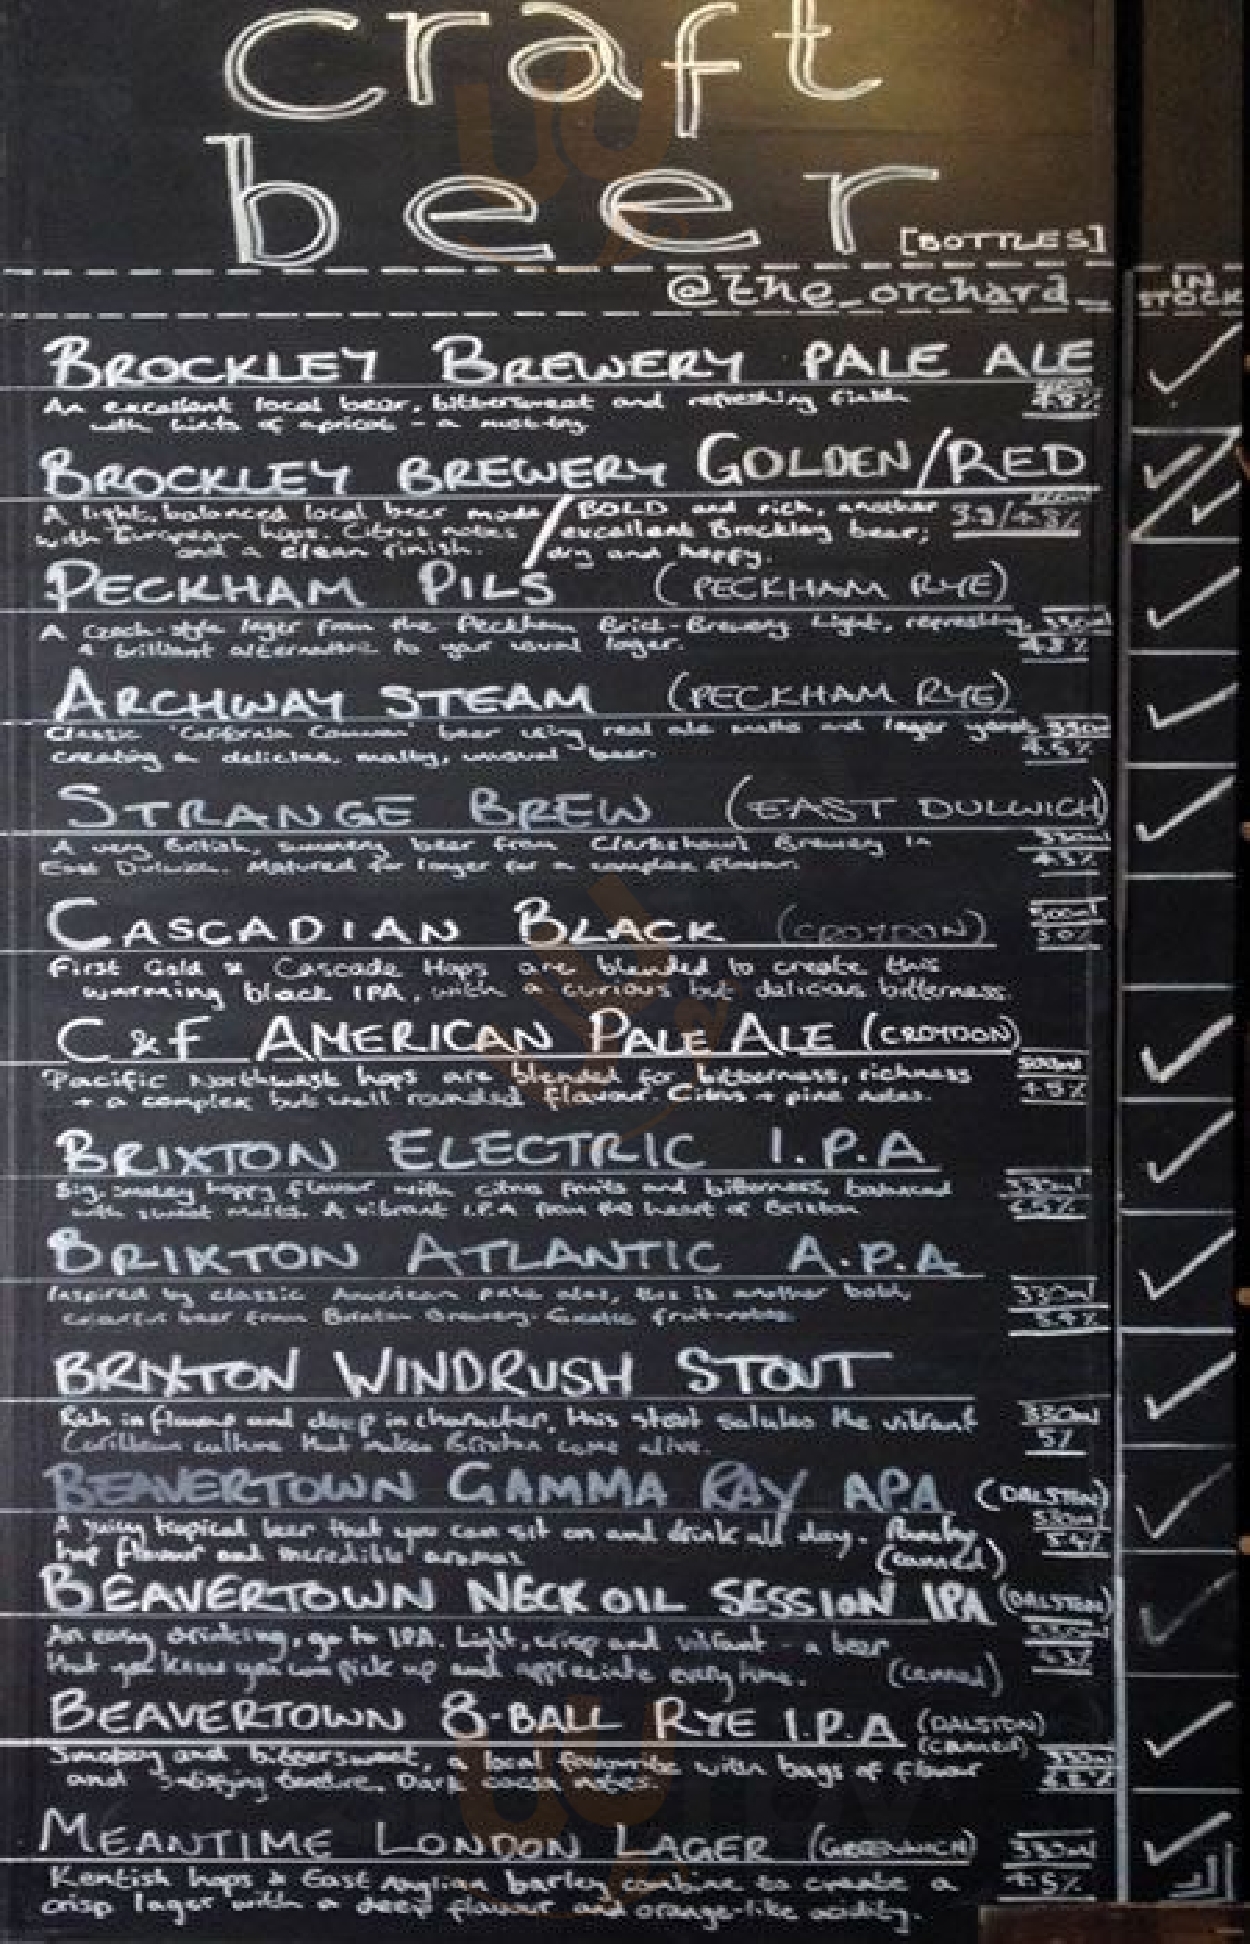 craft
beer
[BOTTLES]
@the_orchard_
IN
STOCK
BROCKLEY BREWERY PALE ALE
An excellent local beer, bittersweet and refreshing finish
with hints of apricot - a must-try
BROCKLEY BREWERY GOLDEN/RED
A light, balanced local beer made / BOLD and rich, another
with European hops. Citrus notes / excellent Brockley beer;
and a clean finish. / dry and hoppy.
PECKHAM PILS (PECKHAM RYE)
A Czech-style lager from the Peckham Brick-Brewery. Light, refreshing, 330ml
& brilliant alternative to your usual lager. 4.8%
ARCHWAY STEAM (PECKHAM RYE)
Classic 'California Common' beer using real ale malts and lager yeast,
creating a delicious, malty, unusual beer. 4.5%
STRANGE BREW (EAST DULWICH)
A very British, summery beer from Clarkshaws Brewery in 330ml
East Dulwich. Matured for longer for a complex flavour.
CASCADIAN BLACK (CROYDON) 500ml
First Gold & Cascade Hops are blended to create this
warming black IPA, with a curious but delicious bitterness.
C&F AMERICAN PALE ALE (CROYDON)
Pacific Northwest hops are blended for bitterness, richness 500ml
+ a complex but well rounded flavour. Citrus + pine notes.
BRIXTON ELECTRIC I.P.A
Big, smokey hoppy flavour with citrus fruits and bitterness, balanced 330ml
with sweet malts. A vibrant I.P.A from the heart of Brixton 6.5%
BRIXTON ATLANTIC A.P.A
Inspired by classic American pale ales, this is another bold, 330ml
colourful beer from Brixton Brewery. Exotic fruit-notes 5.4%
BRIXTON WINDRUSH STOUT
Rich in flavour and deep in character, this stout salutes the vibrant 330ml
Caribbean culture that makes Brixton come alive. 5%
BEAVERTOWN GAMMA RAY APA (DALSTON)
A juicy tropical beer that you can sit on and drink all day. Punchy 330ml
hop flavour and incredible aromas (canned) 5.4%
BEAVERTOWN NECK OIL SESSION IPA (DALSTON)
An easy drinking, go to IPA. Light, crisp and vibrant - a beer 330ml
that you know you can pick up and appreciate everytime. (canned) 4.3%
BEAVERTOWN 8-BALL RYE I.P.A (DALSTON)
(canned)
Smokey and bittersweet, a local favourite with bags of flavour 330ml
and satisfying texture, Dark cocoa notes.
MEANTIME LONDON LAGER (GREENWICH) 330ml
Kentish hops & East Anglian barley combine to create a 4.5%
crisp lager with a deep flavour and orange-like acidity.